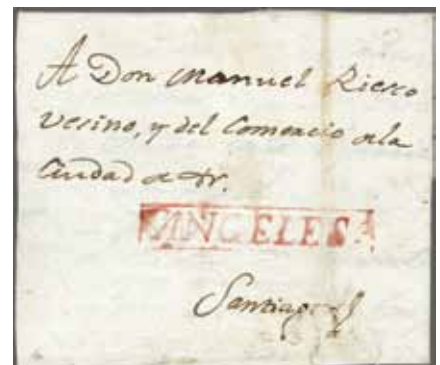 A Don Manuel Riesco
Vesino, y del Comercio de la
Ciudad de
ANGELES
Santiago